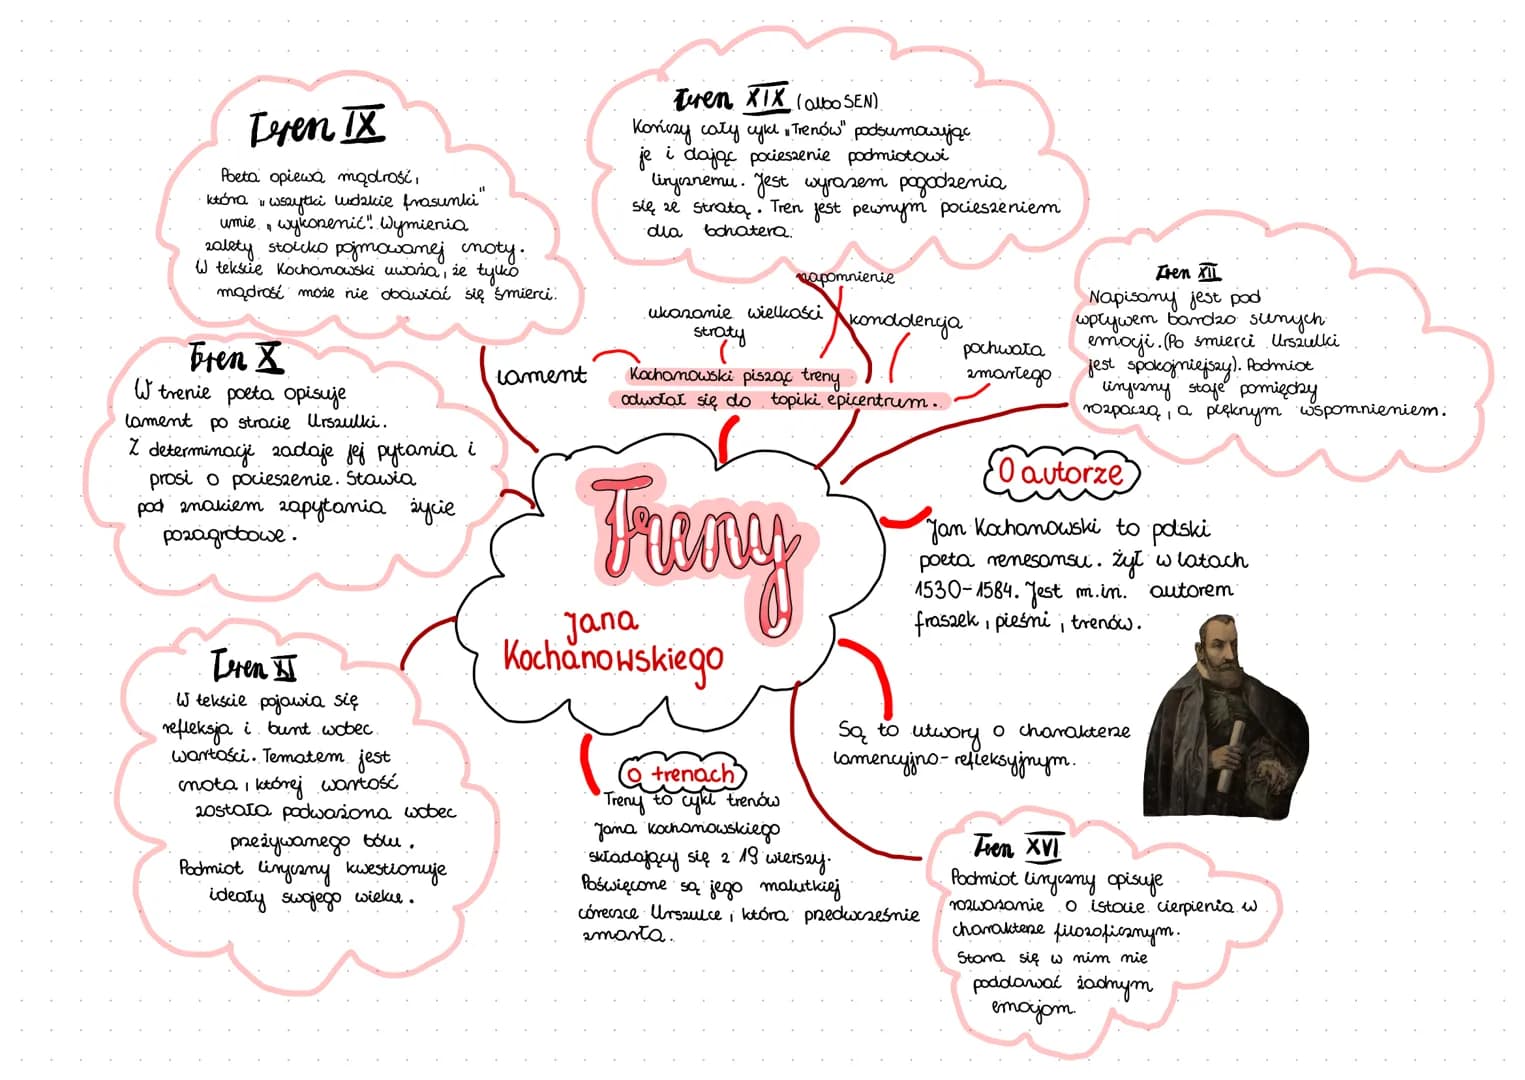 Tren IX
Poeta opiewa mądrość,
która "wszytki ludzkie frasunki"
umie "wykorzenić". Wymienia
zalety stoicko pojmowanej cnoty.
W tekście Kochanowski uważa, że tylko
mądrość może nie obawiać się śmierci.
Tren XIX (albo SEN)
Kończy cały cykl "Trenów" podsumowując
je i dając pocieszenie podmiotowi
lirycznemu. Jest wyrazem pogodzenia
się ze stratą. Tren jest pewnym pocieszeniem
dla bohatera.
Tren XII
Napisany jest pod
wpływem bardzo silnych
emocji. (Po śmierci Urszulki
jest spokojniejszy). Podmiot
liryczny staje pomiędzy
rozpaczą, a pięknym wspomnieniem.
napomnienie
ukazanie wielkości
straty
kondolencja
pochwała
zmarłego
lament
Kochanowski pisząc treny
odwołał się do topiki epicentrum.
Tren X
W trenie poeta opisuje
lament po stracie Urszulki.
Z determinacji zadaje jej pytania i
prosi o pocieszenie. Stawia
pod znakiem zapytania życie
pozagrobowe.
Treny
Jana
Kochanowskiego
O autorze
Jan Kochanowski to polski
poeta renesansu. żył w latach
1530-1584. Jest m.in. autorem
fraszek, pieśni, trenów.
Tren XI
W tekście pojawia się
refleksja i bunt wobec
wartości. Tematem jest
cnota, której wartość
została podważona wobec
przeżywanego bólu.
Podmiot liryczny kwestionuje
ideały swojego wieku.
Są to utwory o charakterze
lamencyjno-refleksyjnym.
o trenach
Treny to cykl trenów
Jana Kochanowskiego
składający się z 19 wierszy.
Poświęcone są jego malutkiej
córeczce Urszulce, która przedwcześnie
zmarła.
Tren XVI
Podmiot liryczny opisuje
rozważanie o istocie cierpienia w
charakterze filozoficznym.
Stara się w nim nie
poddawać żadnym
emocjom.